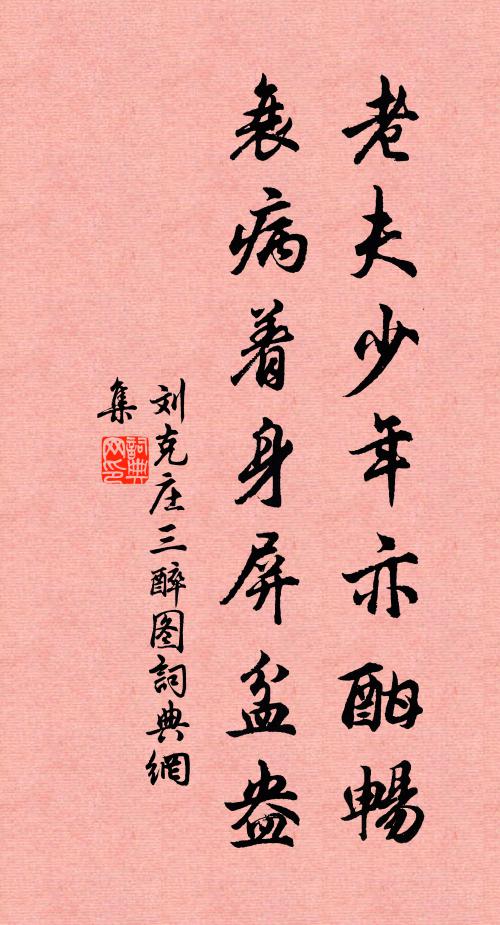 老夫少年亦酣暢
衰病着身屏盆盎
刘克庄三醉图詞典網
集
詞典网印